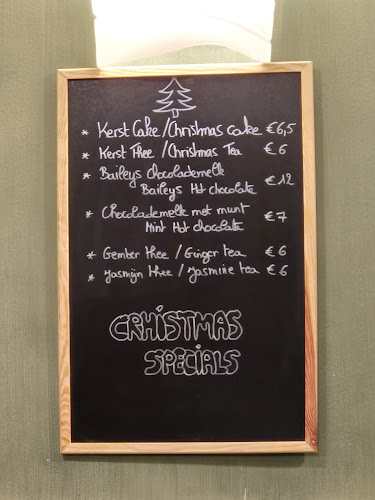 * Kerst Cake / Christmas cake €6,5
* Kerst Thee / Christmas Tea €6
* Baileys chocolademelk
Baileys Hot chocolate €12
* Chocolademelk met munt
Mint Hot chocolate €7
* Gember thee / Ginger tea €6
* Jasmijn thee / Jasmine tea €6
CRHISTMAS
SPECIALS